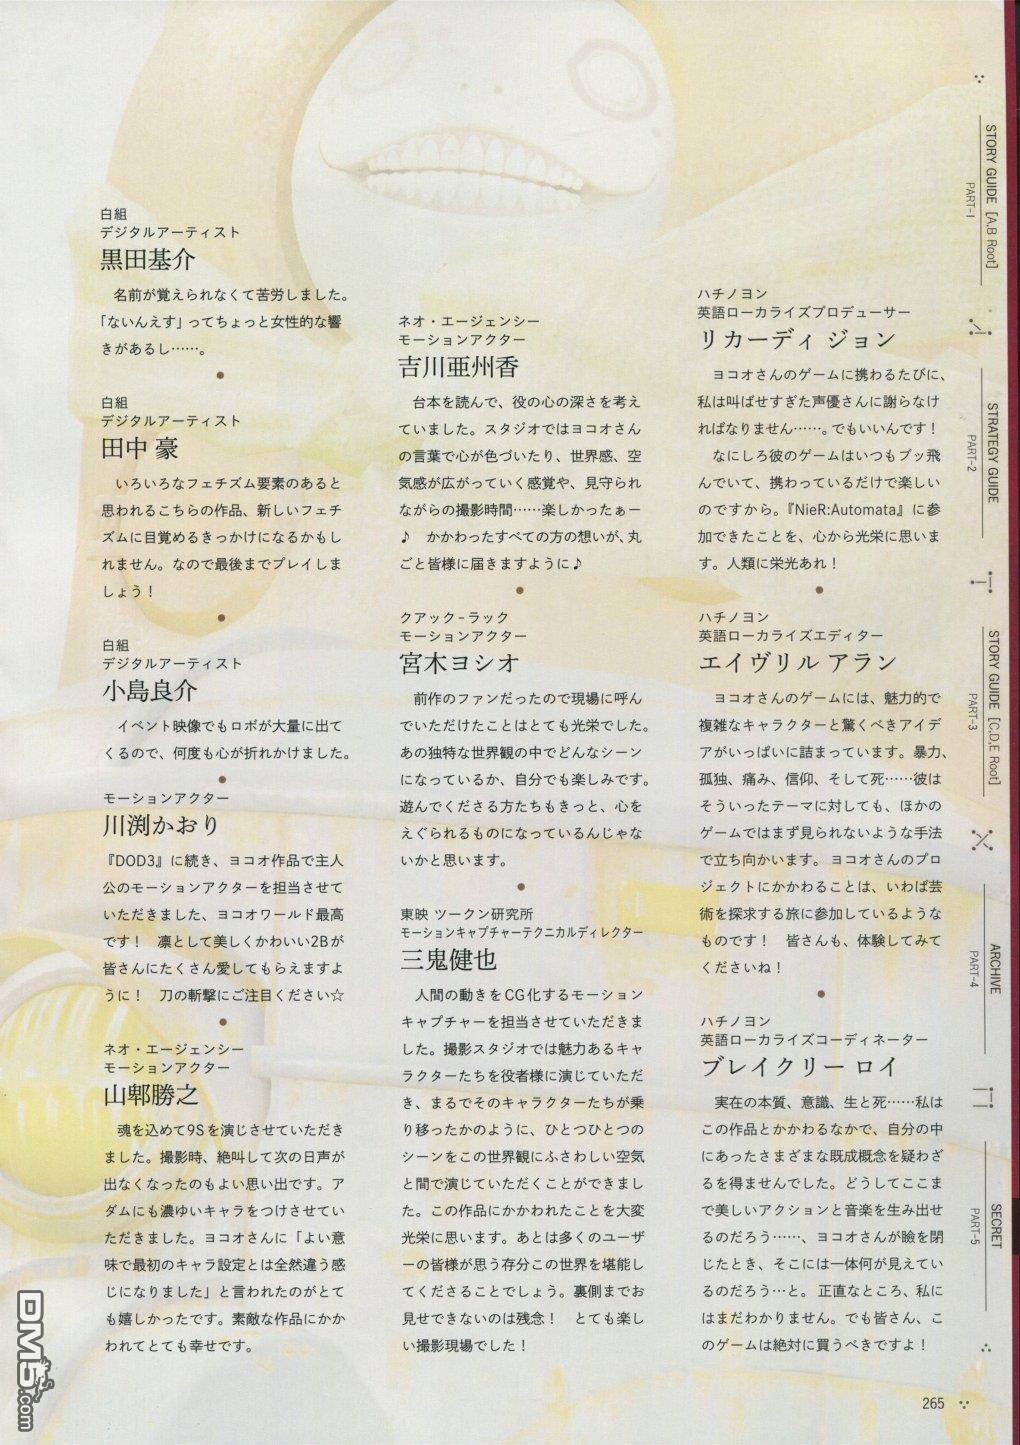 白組
デジタルアーティスト
黒田基介
名前が覚えられなくて苦労しました。
「ないんえす」ってちょっと女性的な響
きがあるし……。
●
白組
デジタルアーティスト
田中 豪
いろいろなフェチズム要素のあると
思われるこちらの作品、新しいフェチ
ズムに目覚めるきっかけになるかもし
れません。なので最後までプレイしま
しょう！
●
白組
デジタルアーティスト
小島良介
イベント映像でもロボが大量に出て
くるので、何度も心が折れかけました。
●
モーションアクター
川渕かおり
『DOD3』に続き、ヨコオ作品で主人
公のモーションアクターを担当させて
いただきました、ヨコオワールド最高
です！　凛として美しくかわいい2Bが
皆さんにたくさん愛してもらえますよ
うに！　刀の斬撃にご注目ください☆
●
ネオ・エージェンシー
モーションアクター
山郸勝之
魂を込めて9Sを演じさせていただき
ました。撮影時、絶叫して次の日声が
出なくなったのもよい思い出です。ア
ダムにも濃ゆいキャラをつけさせてい
ただきました。ヨコオさんに「よい意
味で最初のキャラ設定とは全然違う感
じになりました」と言われたのがとて
も嬉しかったです。素敵な作品にかか
われてとても幸せです。
ネオ・エージェンシー
モーションアクター
吉川亜州香
台本を読んで、役の心の深さを考え
ていました。スタジオではヨコオさん
の言葉で心が色づいたり、世界感、空
気感が広がっていく感覚や、見守られ
ながらの撮影時間……楽しかったぁー
♪　かかわったすべての方の想いが、丸
ごと皆様に届きますように♪
●
クアック-ラック
モーションアクター
宮木ヨシオ
前作のファンだったので現場に呼ん
でいただけたことはとても光栄でした。
あの独特な世界観の中でどんなシーン
になっているか、自分でも楽しみです。
遊んでくださる方たちもきっと、心を
えぐられるものになっているんじゃな
いかと思います。
●
東映 ツークン研究所
モーションキャプチャーテクニカルディレクター
三鬼健也
人間の動きをCG化するモーション
キャプチャーを担当させていただきま
した。撮影スタジオでは魅力あるキャ
ラクターたちを役者様に演じていただ
き、まるでそのキャラクターたちが乗
り移ったかのように、ひとつひとつの
シーンをこの世界観にふさわしい空気
と間で演じていただくことができまし
た。この作品にかかわれたことを大変
光栄に思います。あとは多くのユーザ
ーの皆様が思う存分この世界を堪能し
てくださることでしょう。裏側までお
見せできないのは残念！　とても楽し
い撮影現場でした！
ハチノヨン
英語ローカライズプロデューサー
リカーディ ジョン
ヨコオさんのゲームに携わるたびに、
私は叫ばせすぎた声優さんに謝らなけ
ればなりません……。でもいいんです！
なにしろ彼のゲームはいつもブッ飛
んでいて、携わっているだけで楽しい
のですから。『NieR:Automata』に参
加できたことを、心から光栄に思いま
す。人類に栄光あれ！
●
ハチノヨン
英語ローカライズエディター
エイヴリル アラン
ヨコオさんのゲームには、魅力的で
複雑なキャラクターと驚くべきアイデ
アがいっぱいに詰まっています。暴力、
孤独、痛み、信仰、そして死……彼は
そういったテーマに対しても、ほかの
ゲームではまず見られないような手法
で立ち向かいます。ヨコオさんのプロ
ジェクトにかかわることは、いわば芸
術を探求する旅に参加しているような
ものです！　皆さんも、体験してみて
くださいね！
●
ハチノヨン
英語ローカライズコーディネーター
ブレイクリー ロイ
実在の本質、意識、生と死……私は
この作品とかかわるなかで、自分の中
にあったさまざまな既成概念を疑わざ
るを得ませんでした。どうしてここま
で美しいアクションと音楽を生み出せ
るのだろう……、ヨコオさんが瞼を閉
じたとき、そこには一体何が見えてい
るのだろう…と。正直なところ、私に
はまだわかりません。でも皆さん、こ
のゲームは絶対に買うべきですよ！
STORY GUIDE [A,B Root]
PART-1
STRATEGY GUIDE
PART-2
STORY GUIDE [C,D,E Root]
PART-3
ARCHIVE
PART-4
SECRET
PART-5
265
DM5.com